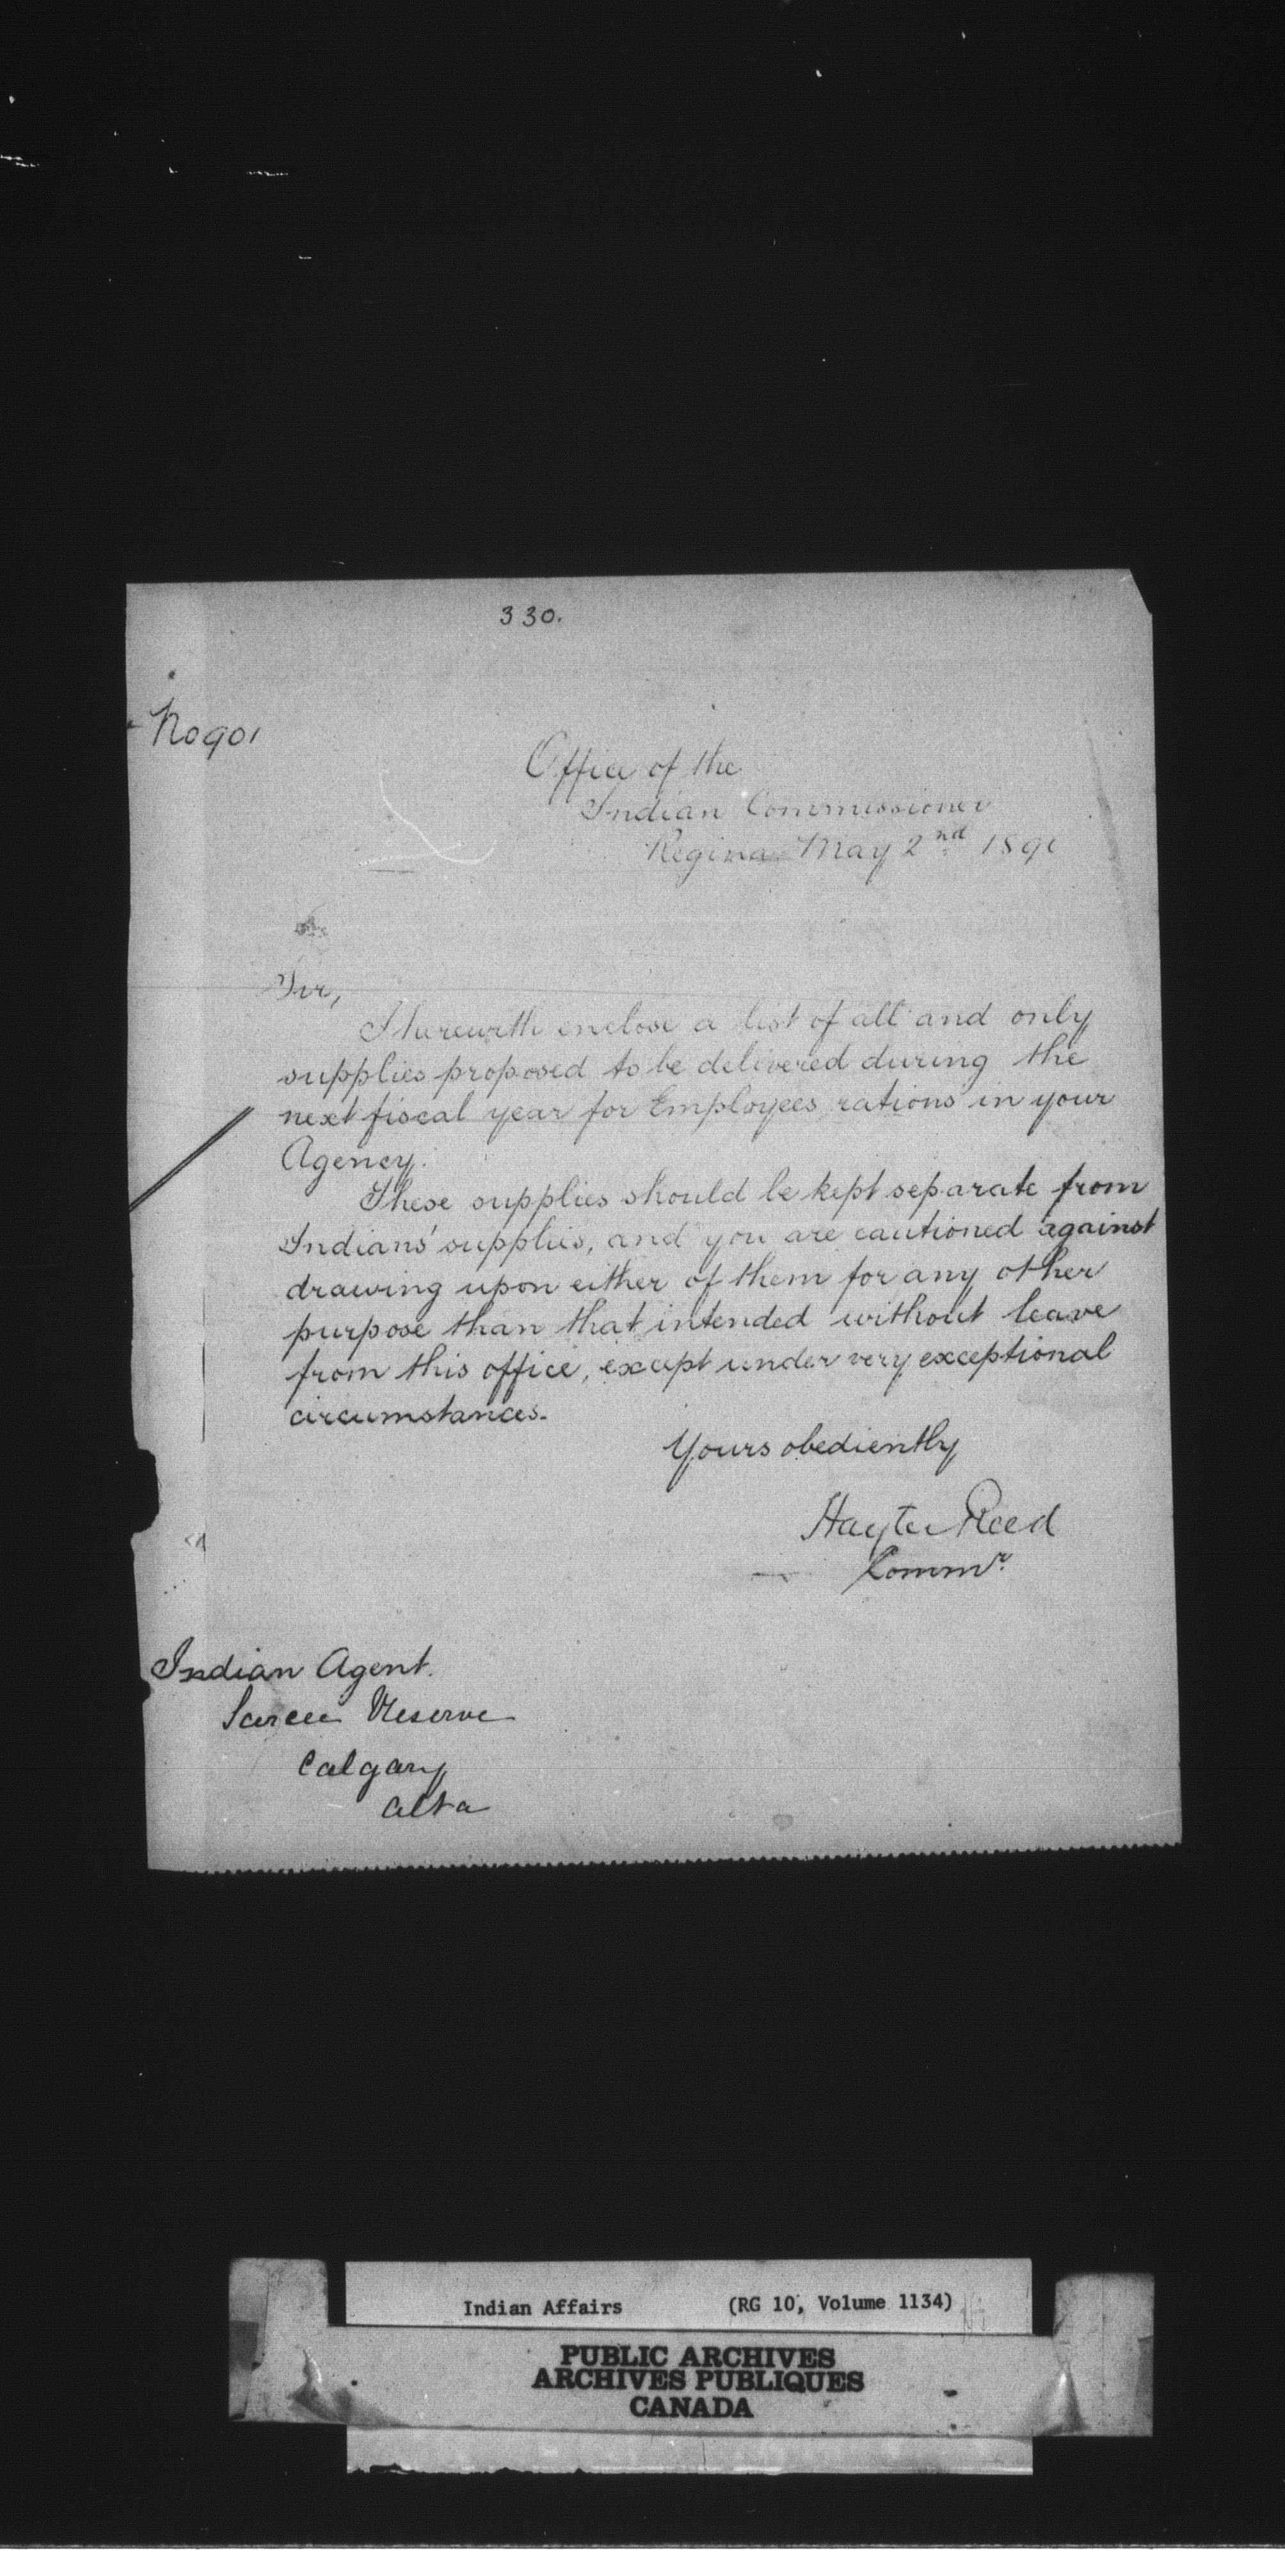 330.
No 901
Office of the
Indian Commissioner
Regina May 2nd 1891
Sir,
I herewith enclose a list of all and only
supplies proposed to be delivered during the
next fiscal year for Employees rations in your
Agency.
These supplies should be kept separate from
Indians' supplies, and you are cautioned against
drawing upon either of them for any other
purpose than that intended without leave
from this office, except under very exceptional
circumstances.
Yours obediently
Hayter Reed
Commr.
Indian Agent.
Sarcee Reserve
Calgary
Alta
Indian Affairs (RG 10, Volume 1134)
PUBLIC ARCHIVES
ARCHIVES PUBLIQUES
CANADA